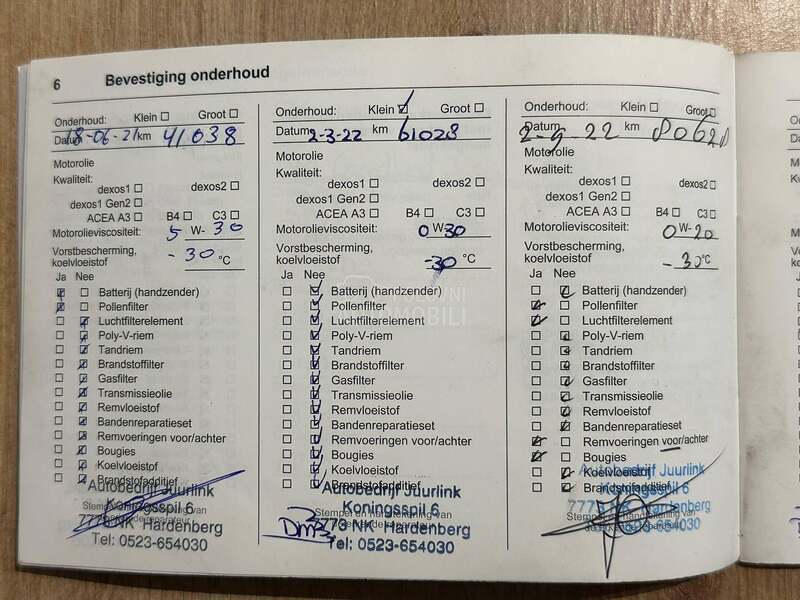 6 Bevestiging onderhoud
Onderhoud: Klein Groot
Datum 18-06-21 km 41038
Motorolie
Kwaliteit:
dexos1 dexos2
dexos1 Gen2
ACEA A3 B4 C3
Motorolieviscositeit: 5 W- 30
Vorstbescherming,
koelvloeistof -30 °C
Ja Nee
Batterij (handzender)
Pollenfilter
Luchtfilterelement
Poly-V-riem
Tandriem
Brandstoffilter
Gasfilter
Transmissieolie
Remvloeistof
Bandenreparatieset
Remvoeringen voor/achter
Bougies
Koelvloeistof
Brandstofadditief
Autobedrijf Juurlink
Koningsspil 6
7773 NK Hardenberg
Tel: 0523-654030
Onderhoud: Klein Groot
Datum 2-3-22 km 61028
Motorolie
Kwaliteit:
dexos1 dexos2
dexos1 Gen2
ACEA A3 B4 C3
Motorolieviscositeit: 0 W-30
Vorstbescherming,
koelvloeistof -30 °C
Ja Nee
Batterij (handzender)
Pollenfilter
Luchtfilterelement
Poly-V-riem
Tandriem
Brandstoffilter
Gasfilter
Transmissieolie
Remvloeistof
Bandenreparatieset
Remvoeringen voor/achter
Bougies
Koelvloeistof
Brandstofadditief
Autobedrijf Juurlink
Koningsspil 6
7773 NK Hardenberg
Tel: 0523-654030
Onderhoud: Klein Groot
Datum 2-9-22 km 80628
Motorolie
Kwaliteit:
dexos1 dexos2
dexos1 Gen2
ACEA A3 B4 C3
Motorolieviscositeit: 0 W-20
Vorstbescherming,
koelvloeistof -30 °C
Ja Nee
Batterij (handzender)
Pollenfilter
Luchtfilterelement
Poly-V-riem
Tandriem
Brandstoffilter
Gasfilter
Transmissieolie
Remvloeistof
Bandenreparatieset
Remvoeringen voor/achter
Bougies
Koelvloeistof
Brandstofadditief
Autobedrijf Juurlink
Koningsspil 6
Stempel en handtekening van